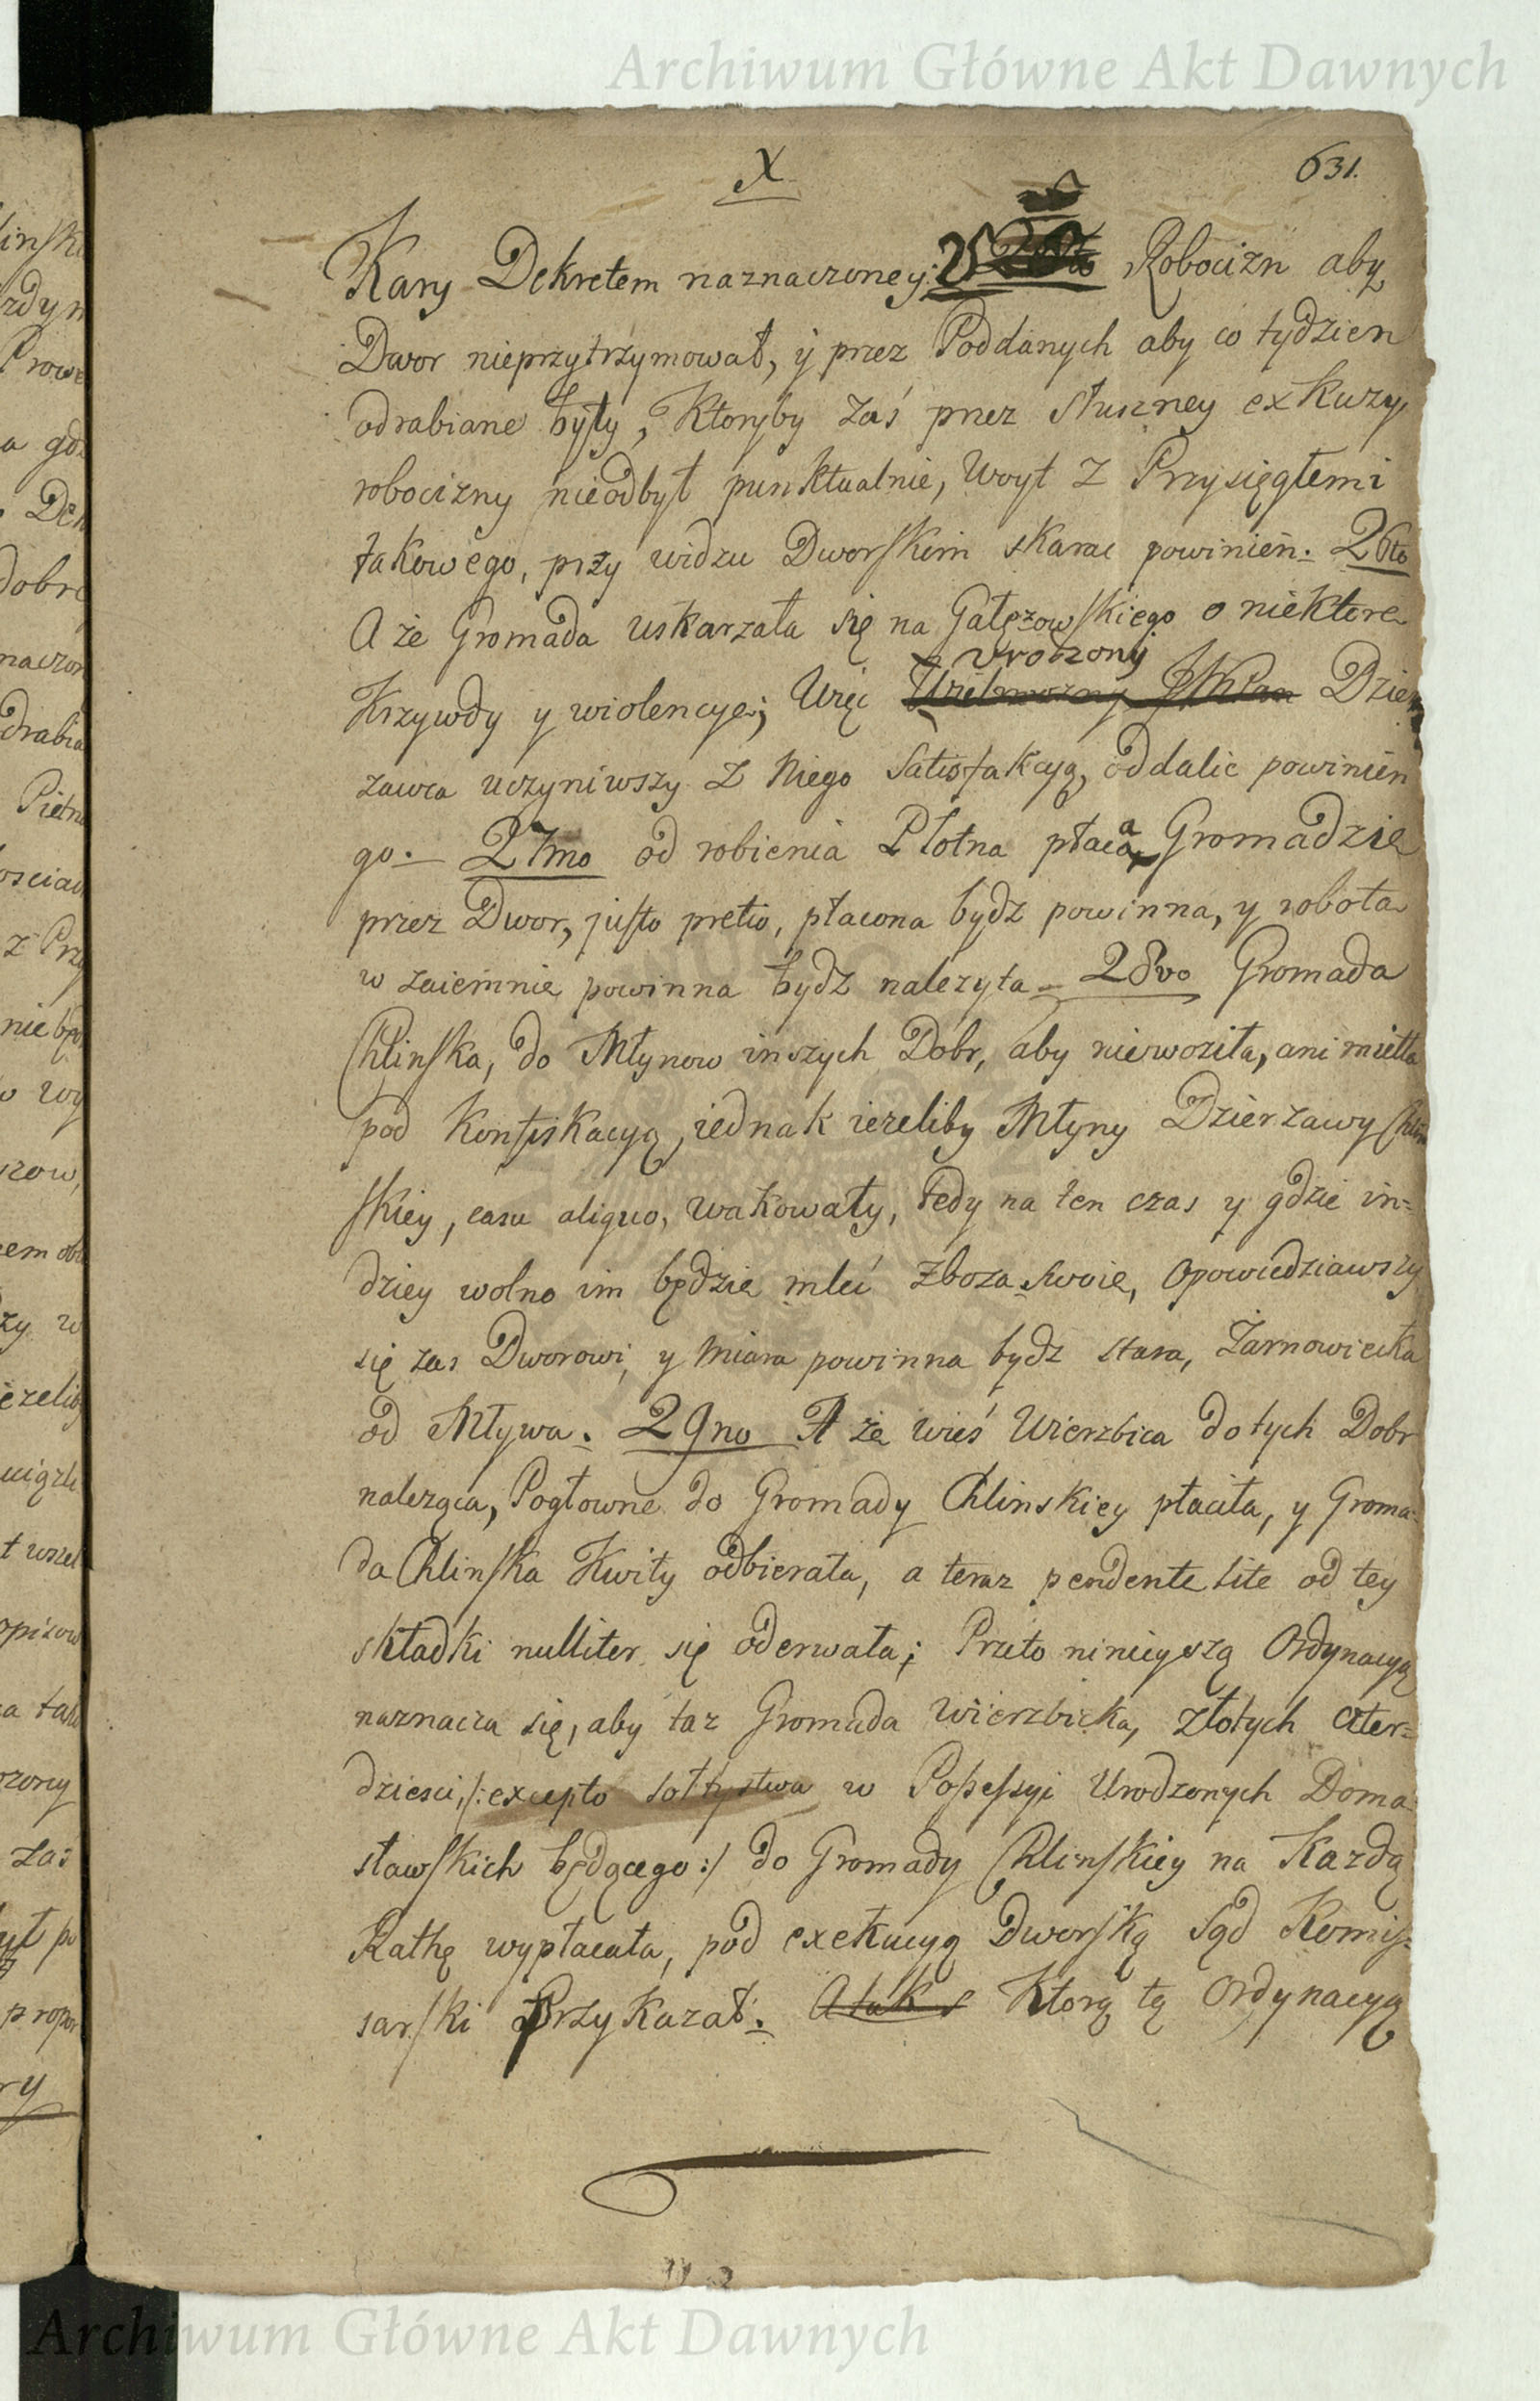 Archiwum Główne Akt Dawnych
X
631.
Kary Dekretem naznaczoney: Robocizn aby
Dwor nieprzytrzymował, y przez Poddanych aby co tydzien
odrabiane były, Ktoryby zaś przez słuszney exkuzy
robocizny nieodbył punktualnie, Woyt z Przysięgłemi
takowego, przy widzu Dworskim skarac powinien. 26to
A że Gromada uskarzała się na Gałęzowskiego o niektore
Urodzony
Krzywdy y wiolencye; Więc Wielmozny JMPan Dzier
zawca uczyniwszy z Niego Satisfakcyą, oddalic powinien
go. 27mo od robienia Płotna płaca Gromadzie
przez Dwor, justo pretio, płacona bydz powinna, y robota
wzaiemnie powinna bydz nalezyta 28vo Gromada
Chlinska, do Młynow inszych Dobr, aby niewoziła, ani mełła
pod Konfiskacyą, iednak iezeliby Młyny Dzierzawy Chlin
skiey, casu aliquo, wakowały, tedy na ten czas y gdzie in=
dziey wolno im będzie mleć zboza swoie, opowiedziawszy
się zas Dworowi, y Miara powinna bydz stara, Żarnowiecka
od Mływa. 29no A że wieś Wierzbica do tych Dobr
nalezqca, Pogłowne do Gromady Chlinskiey płaciła, y Groma=
da Chlinska Kwity odbierała, a teraz pendente lite od tey
składki nulliter się oderwała; Przeto ninieyszą Ordynacyą
naznacza się, aby taz Gromada Wierzbicka, złotych czter=
dziesci, /: excepto sołtystwa w Possessyi Urodzonych Doma=
sławskich będącego :/ do Gromady Chlinskiey na Kazdą
Rathę wypłacała, pod exekucyą Dworską Sąd Komis=
sarski przykazał. A tak s Ktorą tę Ordynacyą
Archiwum Główne Akt Dawnych